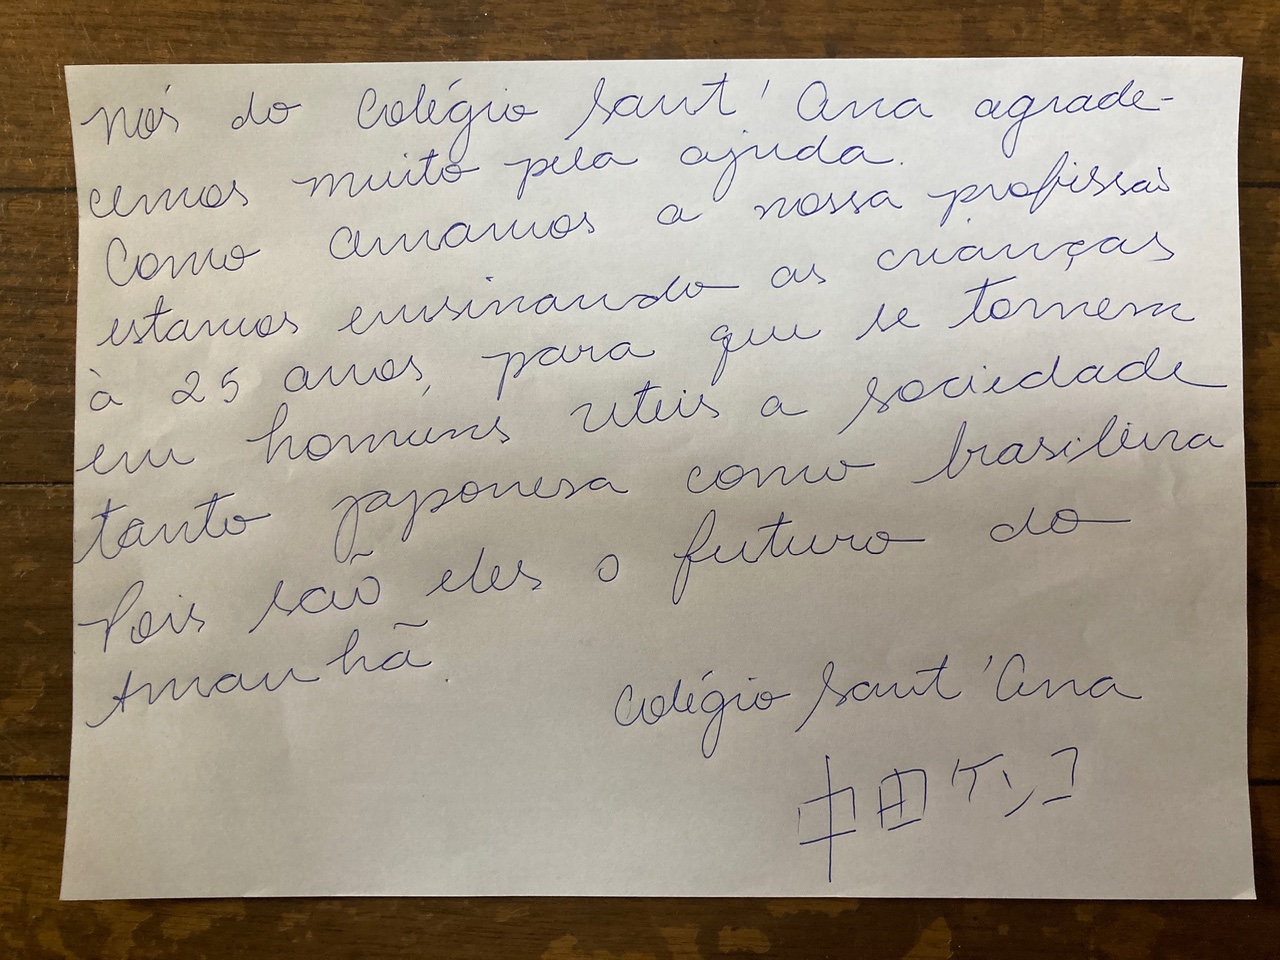 Nós do Colégio Sant' Ana agrade-
cemos muito pela ajuda.
Como amamos a nossa profissão
estamos ensinando as crianças
à 25 anos, para que se tornem
em homens uteis a sociedade
tanto japonesa como brasileira
Pois são eles o futuro do
Amanhã.
Colégio Sant 'Ana
中田ケンコ